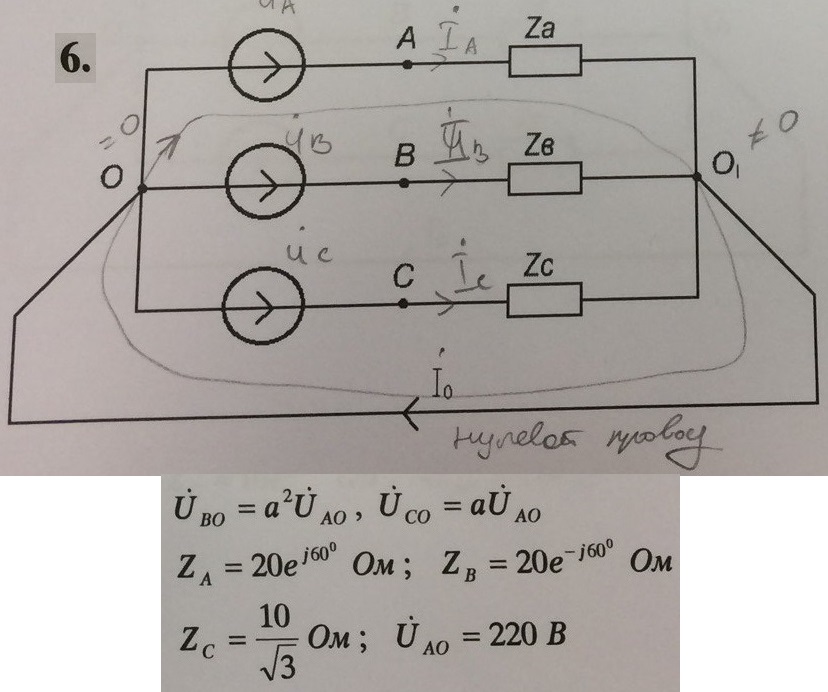 U̇A
6.
A İA Za
=0 U̇B B İB Zв ≠0
O O₁
U̇c C İc Zc
İ₀
нулевой провод
U̇_BO = a²U̇_AO, U̇_CO = aU̇_AO
Z_A = 20e^{j60⁰} Ом; Z_B = 20e^{-j60⁰} Ом
Z_C = 10/√3 Ом; U̇_AO = 220 В